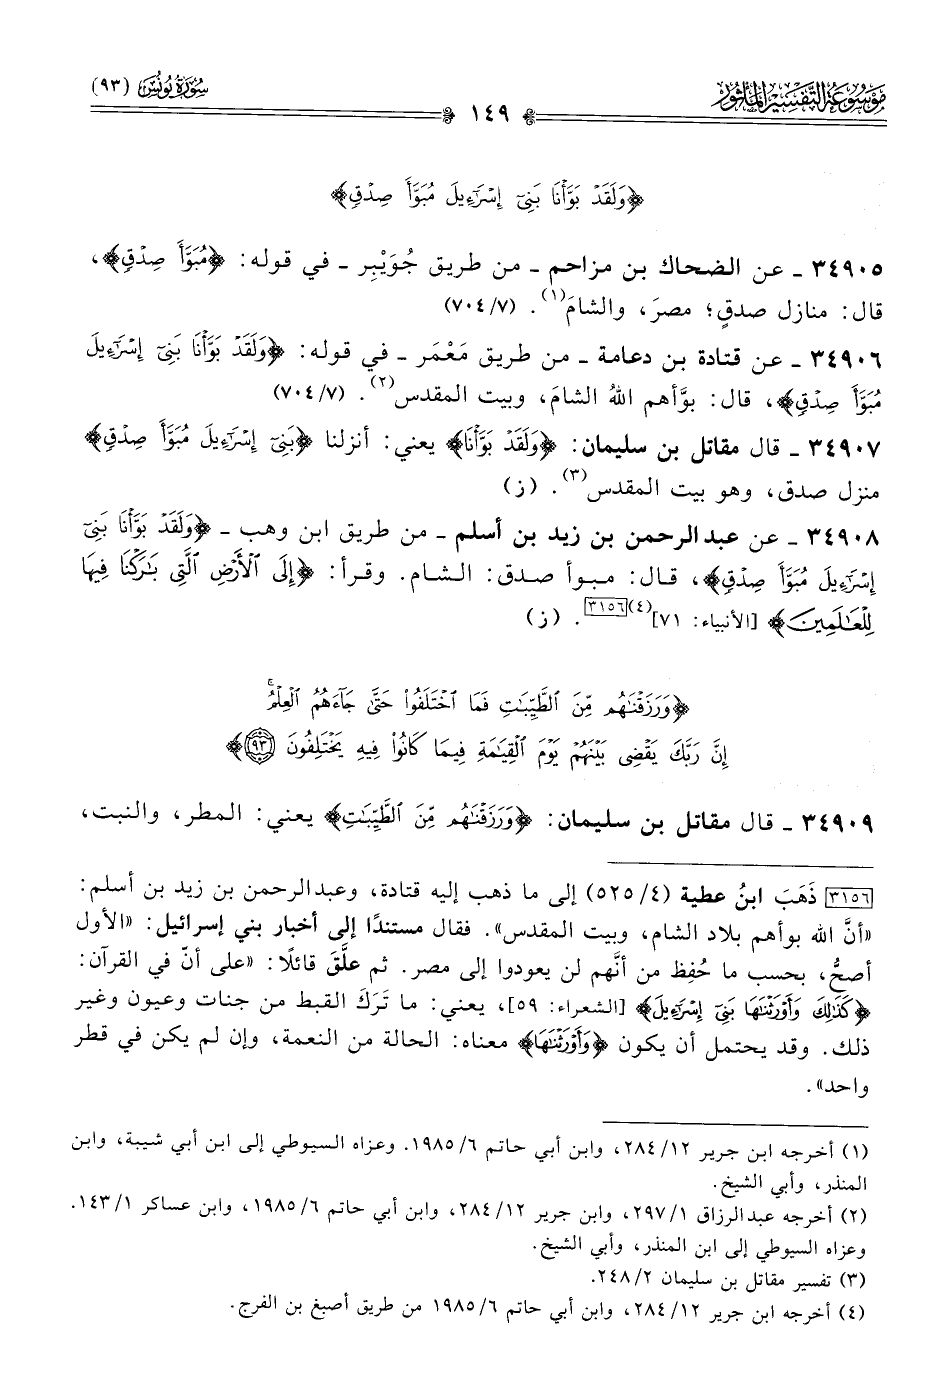 موسوعة التفسير المأثور
سورة يونس (٩٣)
١٤٩
﴿وَلَقَدْ بَوَّأْنَا بَنِىٓ إِسْرَٰٓءِيلَ مُبَوَّأَ صِدْقٍ﴾
٣٤٩٠٥ ـ عن الضحاك بن مزاحم ـ من طريق جُوَيْبِر ـ في قوله: ﴿مُبَوَّأَ صِدْقٍ﴾،
قال: منازل صدقٍ؛ مصرَ، والشامَ(١). (٧/ ٧٠٤)
٣٤٩٠٦ ـ عن قتادة بن دعامة ـ من طريق مَعْمَر ـ في قوله: ﴿وَلَقَدْ بَوَّأْنَا بَنِىٓ إِسْرَٰٓءِيلَ
مُبَوَّأَ صِدْقٍ﴾، قال: بوَّأهم اللهُ الشامَ، وبيت المقدس(٢). (٧/ ٧٠٤)
٣٤٩٠٧ ـ قال مقاتل بن سليمان: ﴿وَلَقَدْ بَوَّأْنَا﴾ يعني: أنزلنا ﴿بَنِىٓ إِسْرَٰٓءِيلَ مُبَوَّأَ صِدْقٍ﴾
منزل صدق، وهو بيت المقدس(٣). (ز)
٣٤٩٠٨ ـ عن عبدالرحمن بن زيد بن أسلم ـ من طريق ابن وهب ـ ﴿وَلَقَدْ بَوَّأْنَا بَنِىٓ
إِسْرَٰٓءِيلَ مُبَوَّأَ صِدْقٍ﴾، قال: مبوأ صدق: الشام. وقرأ: ﴿إِلَى ٱلْأَرْضِ ٱلَّتِى بَٰرَكْنَا فِيهَا
لِلْعَٰلَمِينَ﴾ [الأنبياء: ٧١](٤)[٣١٥٦]. (ز)
﴿وَرَزَقْنَٰهُم مِّنَ ٱلطَّيِّبَٰتِ فَمَا ٱخْتَلَفُوا۟ حَتَّىٰ جَآءَهُمُ ٱلْعِلْمُ ۚ
إِنَّ رَبَّكَ يَقْضِى بَيْنَهُمْ يَوْمَ ٱلْقِيَٰمَةِ فِيمَا كَانُوا۟ فِيهِ يَخْتَلِفُونَ ٩٣﴾
٣٤٩٠٩ ـ قال مقاتل بن سليمان: ﴿وَرَزَقْنَٰهُم مِّنَ ٱلطَّيِّبَٰتِ﴾ يعني: المطر، والنبت،
[٣١٥٦] ذَهَبَ ابنُ عطية (٤/ ٥٢٥) إلى ما ذهب إليه قتادة، وعبدالرحمن بن زيد بن أسلم:
«أنَّ الله بوأهم بلاد الشام، وبيت المقدس». فقال مستندًا إلى أخبار بني إسرائيل: «الأول
أصحُّ، بحسب ما حُفِظ من أنَّهم لن يعودوا إلى مصر. ثم علَّق قائلًا: «على أنّ في القرآن:
﴿كَذَٰلِكَ وَأَوْرَثْنَٰهَا بَنِىٓ إِسْرَٰٓءِيلَ﴾ [الشعراء: ٥٩]، يعني: ما تَرَكَ القبط من جنات وعيون وغير
ذلك. وقد يحتمل أن يكون ﴿وَأَوْرَثْنَٰهَا﴾ معناه: الحالة من النعمة، وإن لم يكن في قطر
واحد».
(١) أخرجه ابن جرير ١٢/ ٢٨٤، وابن أبي حاتم ٦/ ١٩٨٥. وعزاه السيوطي إلى ابن أبي شيبة، وابن
المنذر، وأبي الشيخ.
(٢) أخرجه عبدالرزاق ١/ ٢٩٧، وابن جرير ١٢/ ٢٨٤، وابن أبي حاتم ٦/ ١٩٨٥، وابن عساكر ١/ ١٤٣.
وعزاه السيوطي إلى ابن المنذر، وأبي الشيخ.
(٣) تفسير مقاتل بن سليمان ٢/ ٢٤٨.
(٤) أخرجه ابن جرير ١٢/ ٢٨٤، وابن أبي حاتم ٦/ ١٩٨٥ من طريق أصبغ بن الفرج.